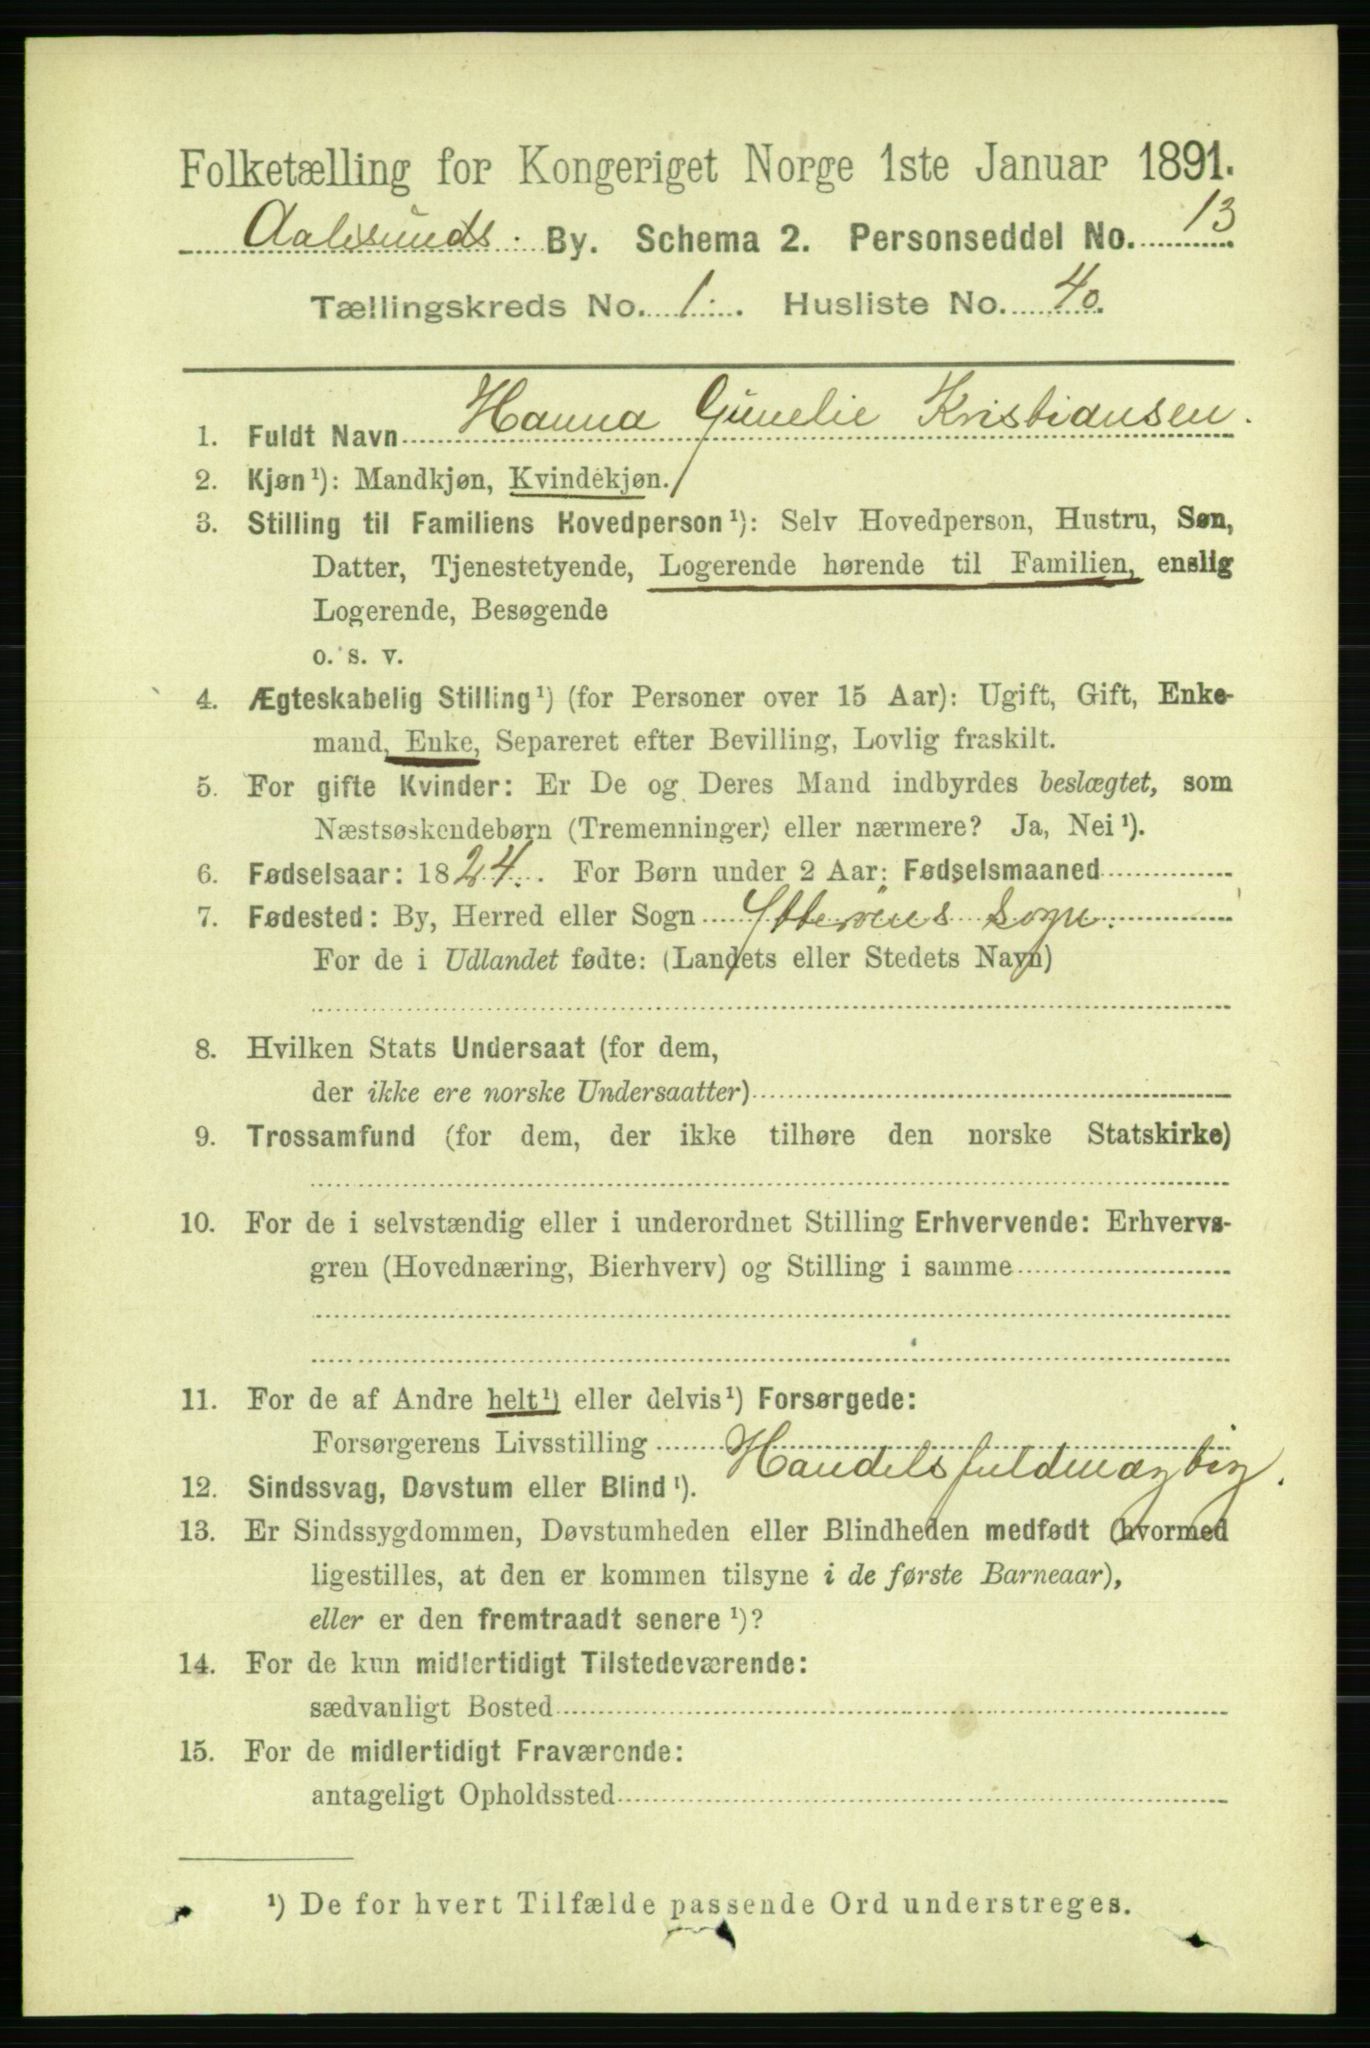 Folketælling for Kongeriget Norge 1ste Januar 1891.
Aalesunds. By. Schema 2. Personseddel No. 13
Tællingskreds No. 1. Husliste No. 40.
1. Fuldt Navn Hanna Gunelie Kristiansen.
2. Kjøn¹): Mandkjøn, Kvindekjøn.
3. Stilling til Familiens Hovedperson¹): Selv Hovedperson, Hustru, Søn,
Datter, Tjenestetyende, Logerende hørende til Familien, enslig
Logerende, Besøgende
o. s. v.
4. Ægteskabelig Stilling¹) (for Personer over 15 Aar): Ugift, Gift, Enke-
mand, Enke, Separeret efter Bevilling, Lovlig fraskilt.
5. For gifte Kvinder: Er De og Deres Mand indbyrdes beslægtet, som
Næstsøskendebørn (Tremenninger) eller nærmere? Ja, Nei¹).
6. Fødselsaar: 1824. For Børn under 2 Aar: Fødselsmaaned
7. Fødested: By, Herred eller Sogn Ytterøens Sogn.
For de i Udlandet fødte: (Landets eller Stedets Navn)
8. Hvilken Stats Undersaat (for dem,
der ikke ere norske Undersaatter)
9. Trossamfund (for dem, der ikke tilhøre den norske Statskirke)
10. For de i selvstændig eller i underordnet Stilling Erhvervende: Erhvervs-
gren (Hovednæring, Bierhverv) og Stilling i samme
11. For de af Andre helt¹) eller delvis¹) Forsørgede:
Forsørgerens Livsstilling Handelsfuldmægtig.
12. Sindssvag, Døvstum eller Blind¹).
13. Er Sindssygdommen, Døvstumheden eller Blindheden medfødt (hvormed
ligestilles, at den er kommen tilsyne i de første Barneaar),
eller er den fremtraadt senere¹)?
14. For de kun midlertidigt Tilstedeværende:
sædvanligt Bosted
15. For de midlertidigt Fraværende:
antageligt Opholdssted
¹) De for hvert Tilfælde passende Ord understreges.